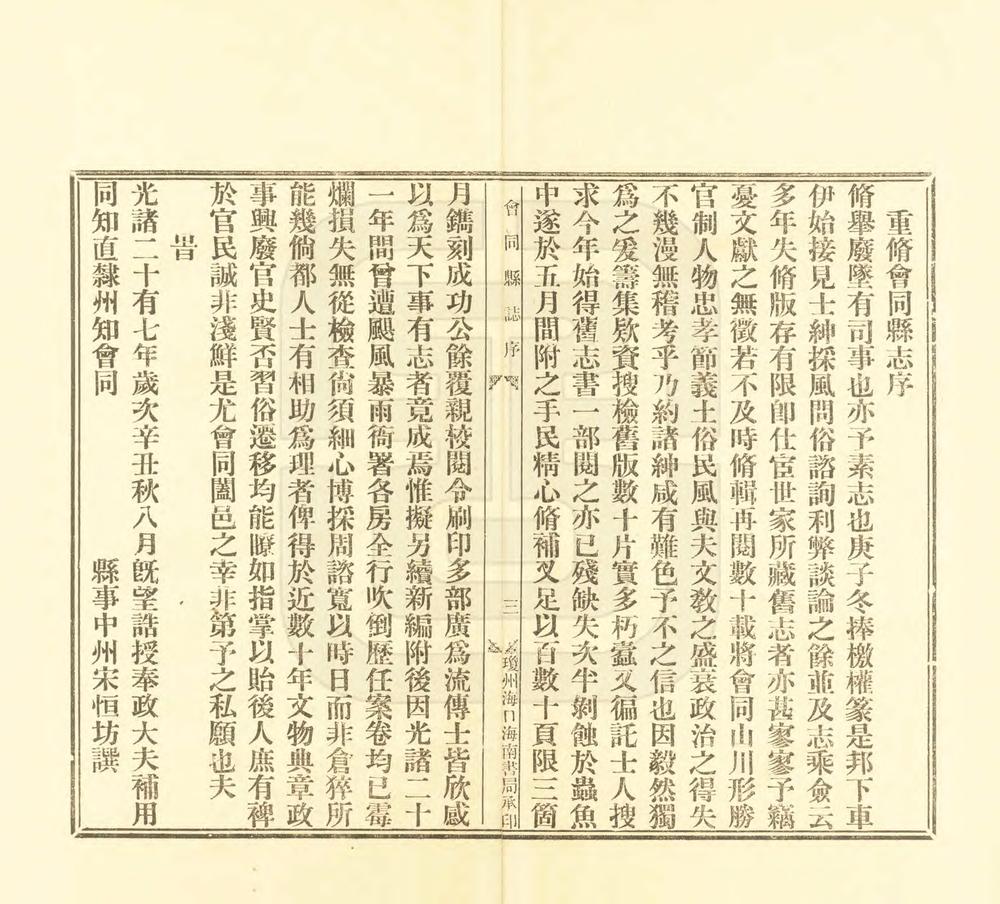 重脩會同縣志序
脩舉廢墜有司事也亦予素志也庚子冬捧檄權篆是邦下車
伊始接見士紳採風問俗諮詢利弊談論之餘並及志乘僉云
多年失脩版存有限卽仕宦世家所藏舊志者亦甚寥寥予竊
憂文獻之無徵若不及時脩輯再閱數十載將會同山川形勝
官制人物忠孝節義土俗民風與夫文敎之盛衰政治之得失
不幾漫無稽考乎乃約諸紳咸有難色予不之信也因毅然獨
爲之爰籌集欵資搜檢舊版數十片實多朽蠹又徧託士人搜
求今年始得舊志書一部閱之亦已殘缺失次半剝蝕於蟲魚
中遂於五月間附之手民精心脩補叉足以百數十頁限三箇
會同縣誌序
三
瓊州海口海南書局承印
月鐫刻成功公餘覆親校閱令刷印多部廣爲流傳士皆欣感
以爲天下事有志者竟成焉惟擬另續新編附後因光諸二十
一年間曾遭颶風暴雨衙署各房全行吹倒歷任案卷均已霉
爛損失無從檢查尙須細心博採周諮寬以時日而非倉猝所
能幾倘都人士有相助爲理者俾得於近數十年文物典章政
事興廢官史賢否習俗遷移均能瞭如指掌以貽後人庶有裨
於官民誠非淺鮮是尤會同闔邑之幸非第予之私願也夫
旹
光諸二十有七年歲次辛丑秋八月旣望誥授奉政大夫補用
同知直隸州知會同
縣事中州宋恒坊譔